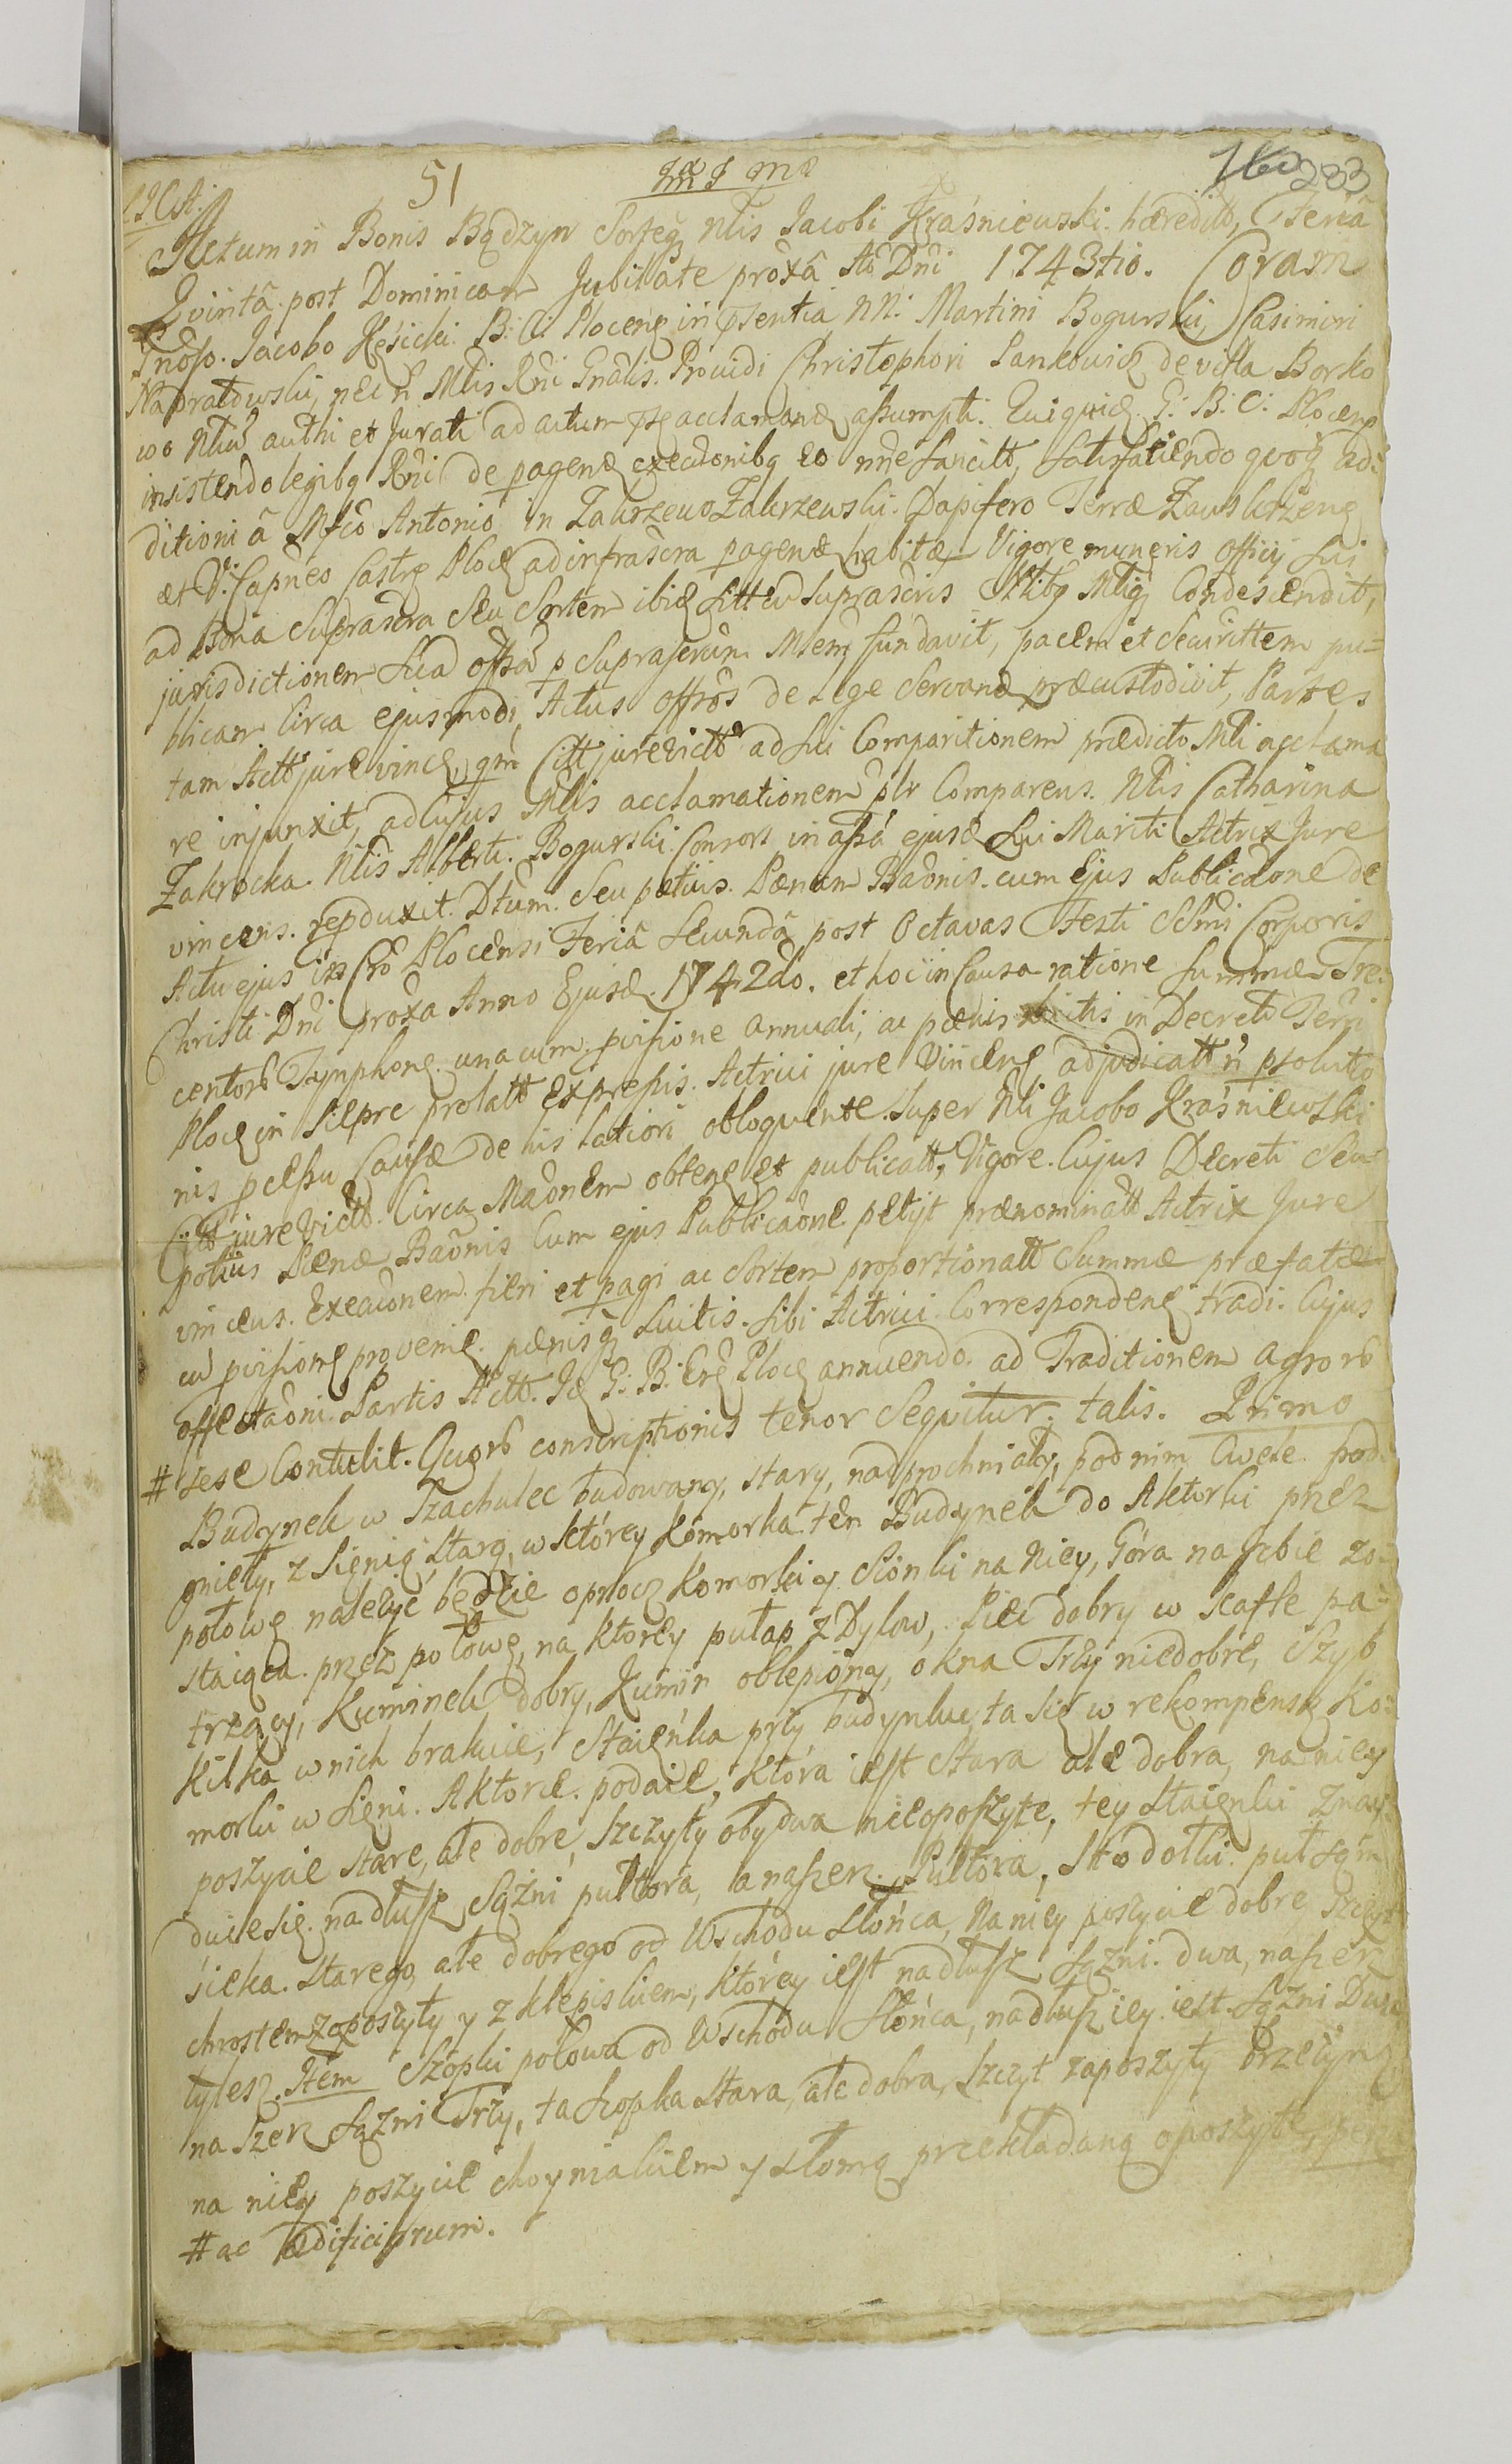 51
283
Actum in Bonis Bądzyn Sorteq Nlis Jacobi Kraśniewski hæreditt, Feriâ
Qvintâ post Dominicam Jubilate proxâ Aõ Dñi 1743tio. Coram
Gnõso Jacobo Kęsicki B: C: Ploceng in psentia NN: Martini Bogurski, Casimiri
Napratowski, nec ñ Mlis Rñi Gnãlis Providi Christophori Pankowicz de villa Borko
wo Ntius authi et Jurati ad actum acclamand assumpti. Qui quid G: B: C: Ploceng
insistendo legibq Rñi de pagend execõnibq eo nñe sancitt, satisfaciendo quoq adi
ditioni â Mfco Antonio in Zakrzewo Zakrzewski Dapifero Terræ Zawskrzeng
et V: Capneo Castrg Ploceg ad infrascra pagend habitæ Vigore muneris officij sui
ad Bona Suprascra Seu Sortem ibid sitt cu Suprascris Nlibq Mliq Condescendit,
jurisdictionem sua offsa p Suprascrum Mlemq fundavit, pacem et securittem pu=
blicam Circa ejusmodi Actus offsos de Lege Servand præcustodivit, Partes
tam Actt jure vinceg, qm Citt jurevictt ad sui Comparitionem prædicto Mli acclama
re injunxit, ad cujus Mlis acclamationem plr Comparens Nlis Catharina
Zakrocka Nlis Alberti Bogurski Consors in assa ejusd sui Mariti Actrix Jure
vincens reproduxit Dtum Seu potius Pænam Bãonis cum Ejus Publicãone de
Actu ejus in Cro Plocensi Feriâ Secundâ post Octavas Festi Sstmi Corporis
Christi Dñi proxa Anno Ejusd 1742do. et hoc in Causa ratione summæ Tre
centor Tymphong una cum provisione annuali, ac pænis in Decreto Terri
Ploceg in Siepre prolatt expressis Actrici jure Vinceng adjudicatt ñ psoluto
nis pcessu Causæ de his latiori obloquente super Nli Jacobo Kraśniewski
Citt jure victt Circa Mãonem obteng et publicatt, Vigore Cujus Decreti Seu
potius Pænæ Bãonis Cum ejus Publicãone petijt prænominatt Actrix Jure
vincens Execũonem fieri et pagi ac Sortem proportionatt Summæ præfatæ
cu provisiong provenig pænisq Luitis sibi Actrici Correspondeng tradi. Cujus
affectãoni Partis Actt Id G: B: Crg Ploceg annuendo ad Traditionem agror
# sese Contulit. Quor conscriptionis tenor Sequitur talis. Primo
Budynek w Tzachulec budowany, stary, nadprochniały, pod nim Cwele pod
gnieły, z sienią starą, w ktorey komorka ten Budynek do Aktorki przez
połowę należyć będzie oprocz Komorki y Sionki na Niey, Góra na Izbie zo
staiąca przez połowę, na ktorey pułap z Dylow, Piec dobry w Kafle pa=
trzący, Kuminek dobry, Kumin oblepiony, okna Trzy niedobre, Szyb
kilka w nich brakuie, Staięnka przy budynku, ta się w rekompensę Ko=
morki w sieni Aktorce podaie, ktora iest stara ale dobra, na niey
poszycie stare, ale dobre, szczyty obydwa nieoposzyte, tey staięnki znay
duie się na dłusz Sążni pułtora, a naszerz Pułtora, Stodołki puł sąm
sieka starego, ale dobrego od Wschodu słońca, Na niey poszycie dobre, szczyt
chrostem zaposzyty y z klepiskiem, ktorey iest nadłusz Sążni dwa, naszerz
tylesz. Item Szopki połowa od Wschodu Słońca, nadłusz iey iest Sążni Dwa
na szerz Sążni Trzy, ta szopka stara, ale dobra, szczyt zaposzyty brzeziną
na niey poszycie choyniakiem y słomą przekładaną oposzyte,
# ac ædificiorum.